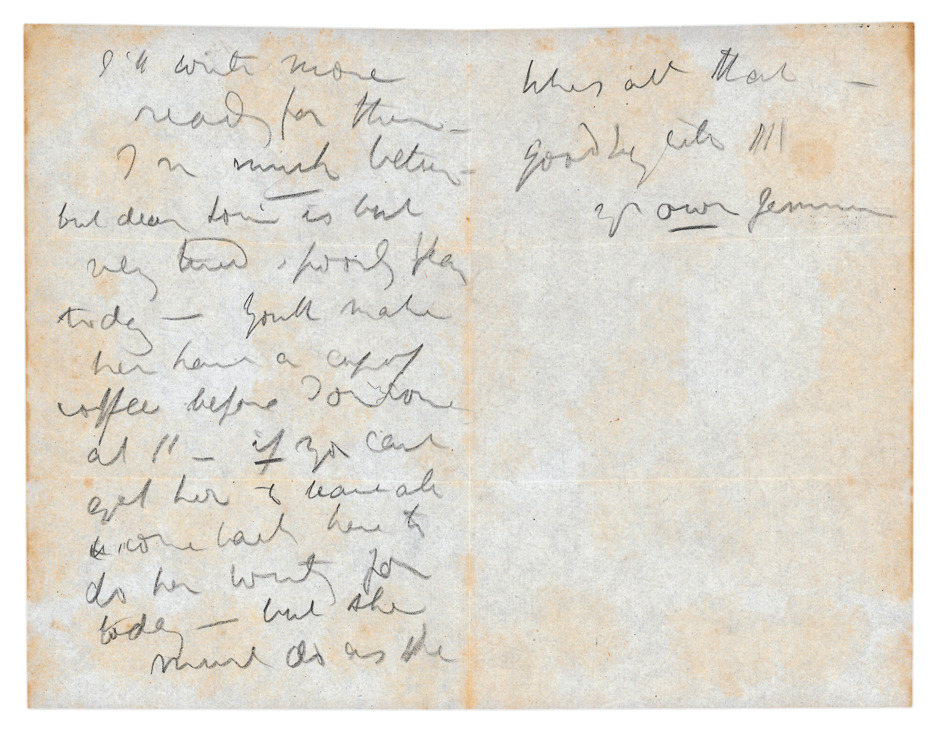 I'll write more
ready for them —
I'm much better —
but dear is but
very tired & poorly
today — You'll make
her have a cup of
coffee before
at 11 — if you can't
get her to leave all
& come back here to
do her for
today — but she
must do as she
likes all that —
goodbye till 111
yr own